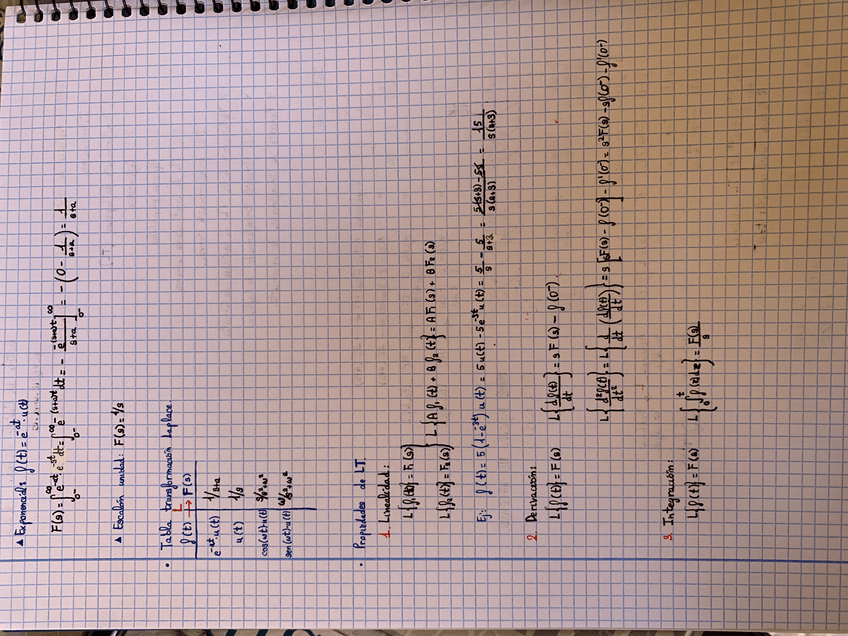 ▲ Exponencial: f(t) = e^-at · u(t)
F(s) = ∫0-^∞ e^-at · e^-st dt = ∫0-^∞ e^-(s+a)t dt = - e^-(s+a)t / s+a ]0-^∞ = - (0 - 1/s+a) = 1/s+a
▲ Escalón unidad: F(s) = 1/s
• Tabla transformación Laplace
f(t) L→ F(s)
e^-at · u(t) 1/s+a
u(t) 1/s
cos(ωt)·u(t) s/s²+ω²
sen(ωt)·u(t) ω/s²+ω²
• Propiedades de LT.
1. Linealidad:
L{f1(t)} = F1(s)
L{f2(t)} = F2(s)
} L{A f1(t) + B f2(t)} = A F1(s) + B F2(s)
Ej: f(t) = 5(1-e^-3t) u(t) = 5u(t) - 5e^-3t u(t) = 5/s - 5/s+3 = 5(s+3)-5s / s(s+3) = 15 / s(s+3)
2. Derivación:
L{f(t)} = F(s) L{df(t)/dt} = sF(s) - f(0-)
L{d²f(t)/dt²} = L{d/dt (df(t)/dt)} = s[sF(s) - f(0-)] - f'(0-) = s²F(s) - sf(0-) - f'(0-)
3. Integración:
L{f(t)} = F(s) L{∫0^t f(z)dz} = F(s)/s